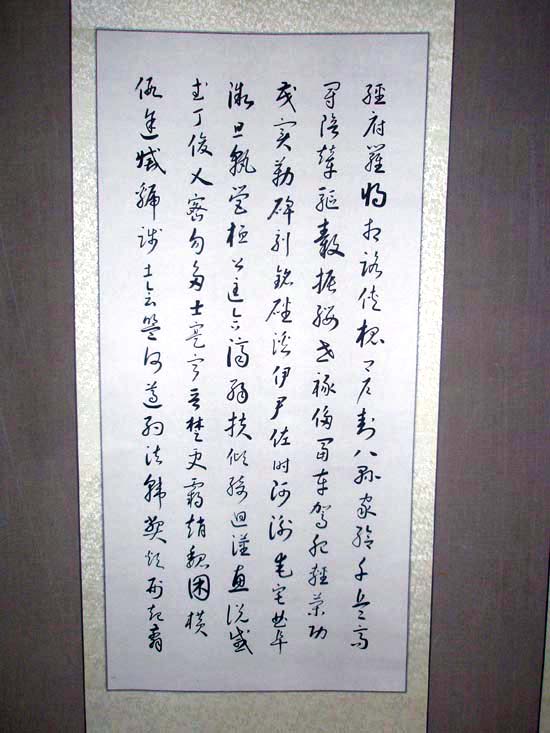 經府羅將相路俠槐卿户封八縣家給千兵高
冠陪輦驅轂振纓世祿侈富車駕肥輕策功
茂實勒碑刻銘磻溪伊尹佐時阿衡奄宅曲阜
微旦孰營桓公匡合濟弱扶傾綺迴漢惠說感
武丁俊乂密勿多士寔寧晉楚更霸趙魏困橫
假途滅虢踐土會盟何遵約法韓弊煩刑起翦